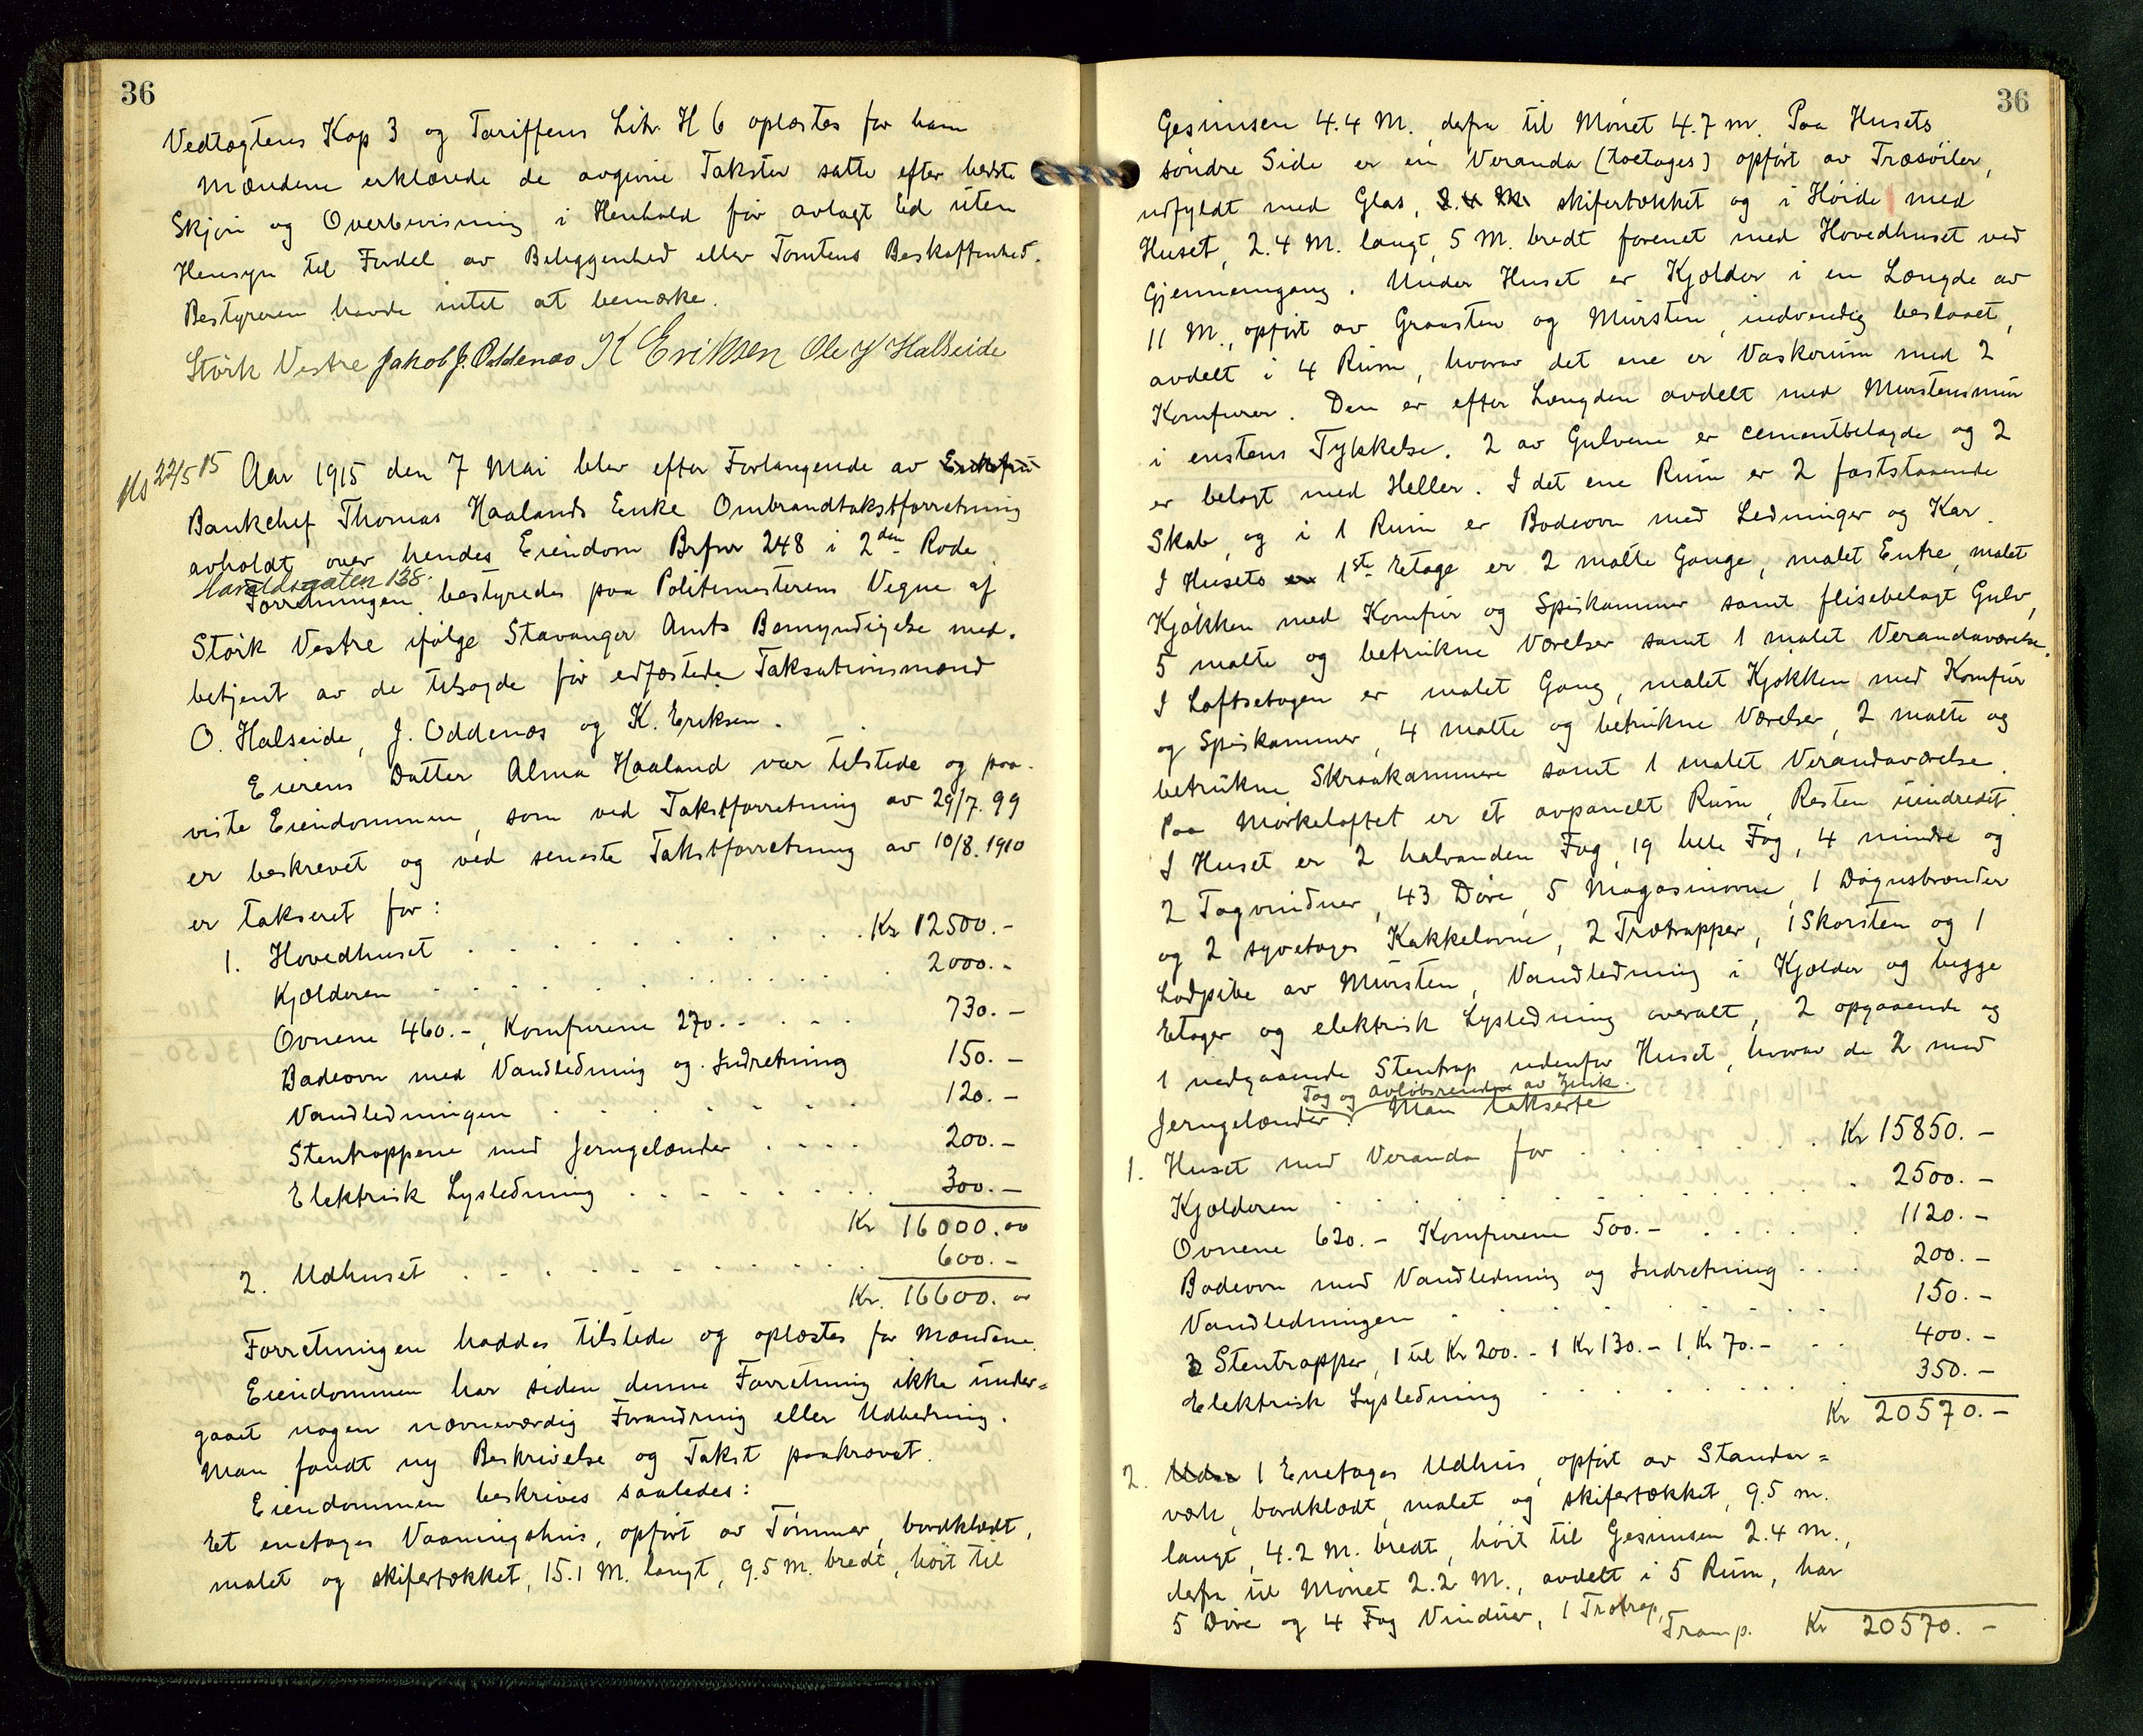 36
Vedtægtens Kap 3 og Tariffens Litr. H 6 oplæstes for ham
Mændene erklærede de avgivne Takster satte efter bedste
Skjøn og Overbevisning i Henhold før avlagt Ed uten
Hensyn til Fordel av Beliggenhed eller Tomtens Beskaffenhed.
Bestyreren havde intet at bemærke.
Störk Vestre Jakob J. Oddenæs K Eriksen Ole J Halseide
22/5 15 Aar 1915 den 7 Mai blev efter Forlangende av Enkefru
Bankchef Thomas Haalands Enke Ombrandtakstforretning
avholdt over hendes Eiendom Brfnr 248 i 2den Rode
Haraldsgaten 138.
Forretningen bestyredes paa Politimesterens Vegne af
Störk Vestre ifølge Stavanger Amts Bemyndigelse med.
betjent av de tilsagde før edfæstede Taksationsmænd
O. Halseide, J. Oddenæs og K. Eriksen.
Eierens Datter Alma Haaland var tilstede og paa-
viste Eiendommen, som ved Takstforretning av 29/7. 99
er beskrevet og ved seneste Takstforretning av 10/8. 1910
er takseret for:
1. Hovedhuset . . . . . . . . . Kr 12500.-
Kjælderen . . . . . . . . . 2000.-
Ovnene 460.-, Komfurene 270.- . . . 730.-
Badeovn med Vandledning og Indretning 150.-
Vandledningen . . . . . . . 120.-
Stentrappene med Jerngelænder . . . . 200.-
Elektrisk Lysledning . . . . . . . 300.-
Kr 16000.00
2. Udhuset . . . . . . . . . 600.-
Kr. 16600.00
Forretningen haddes tilstede og oplæstes for Mændene.
Eiendommen har siden denne Forretning ikke under=
gaaet nogen nævneværdig Forandring eller Udbedring.
Man fandt ny Beskrivelse og Takst paakrævet.
Eiendommen beskrives saaledes:
Et enetages Vaaningshus, opført av Tømmer, bordklædt,
malet og skifertækket, 15.1 M. langt, 9.5 M. bredt, høit til
36
Gesimsen 4.4 M., derfra til Mønet 4.7 m. Paa Husets
søndre Side er en Veranda (toetages) opført av Træsøiler,
udfyldt med Glas, 2.4 M. skifertækket og i Høide med
Huset, 2.4 M. langt, 5 M. bredt forenet med Hovedhuset ved
Gjennemgang. Under Huset er Kjælder i en Længde av
11 M., opført av Graasten og Mursten, indvendig beslaaet,
avdelt i 4 Rum, hvorav det ene er Vaskerum med 2
Komfurer. Den er efter Længden avdelt med Murstensmur
i enstens Tykkelse. 2 av Gulvene er cementbelagde og 2
er belagt med Heller. I det ene Rum er 2 faststaaende
Skab, og i 1 Rum er Badeovn med Ledninger og Kar.
I Husets en 1ste Etage er 2 malte Gange, malet Entre, malet
Kjøkken med Komfur og Spiskammer samt flisebelagt Gulv,
5 malte og betrukne Værelser samt 1 malet Verandaværelse.
I Loftsetagen er malet Gang, malet Kjøkken med Komfur
og Spiskammer, 4 malte og betrukne Værelser, 2 malte og
betrukne Skraakammere samt 1 malet Verandaværelse.
Paa Mørkeloftet er et avpanelt Rum, Resten uindredet.
I Huset er 2 halvanden Fag, 19 hele Fag, 4 mindre og
2 Tagvinduer, 43 Døre, 5 Magasinovne, 1 Døgnsbrænder
og 2 syvetages Kakkelovne, 2 Trætrapper, 1 Skorsten og 1
Lodpibe av Mursten, Vandledning i Kjælder og begge
Etager og elektrisk Lysledning overalt, 2 opgaaende og
1 nedgaaende Stentrap udenfor Huset, hvorav de 2 med
Tag og Avløbsrender av Zink.
Jerngelænder. Man takserte
1. Huset med Veranda for . . . . . . Kr 15850.-
Kjælderen . . . . . . . . . 2500.-
Ovnene 620.- Komfurene 500.- . . . . 1120.-
Badeovn med Vandledning og Indretning . . . 200.-
Vandledningen . . . . . . . 150.-
3 Stentrapper, 1 til Kr 200.- 1 Kr 130.- 1 Kr 70.- . . 400.-
Elektrisk Lysledning . . . . . . . 350.-
Kr 20570.-
2. Udhu 1 Enetages Udhus, opført av Stander=
værk, bordklædt, malet og skifertækket, 9.5 m.
langt, 4.2 M. bredt, høit til Gesimsen 2.4 m.,
derfra til Mønet 2.2 M., avdelt i 5 Rum, har
5 Døre og 4 Fag Vinduer, 1 Trætrap,
Transp. Kr 20570.-